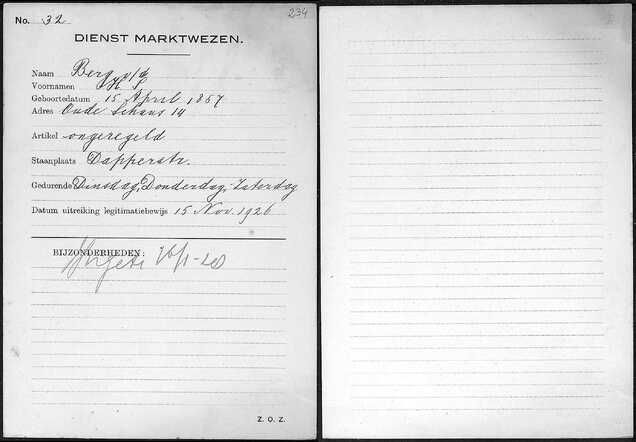 234
No. 32
DIENST MARKTWEZEN.
Naam Berg v/d
Voornamen H S
Geboortedatum 15 April 1857
Adres Oude Schans 14
Artikel ongeregeld
Staanplaats Dapperstr.
Gedurende Dinsdag, Donderdag, Zaterdag
Datum uitreiking legitimatiebewijs 15 Nov. 1926
BIJZONDERHEDEN:
Z. O. Z.